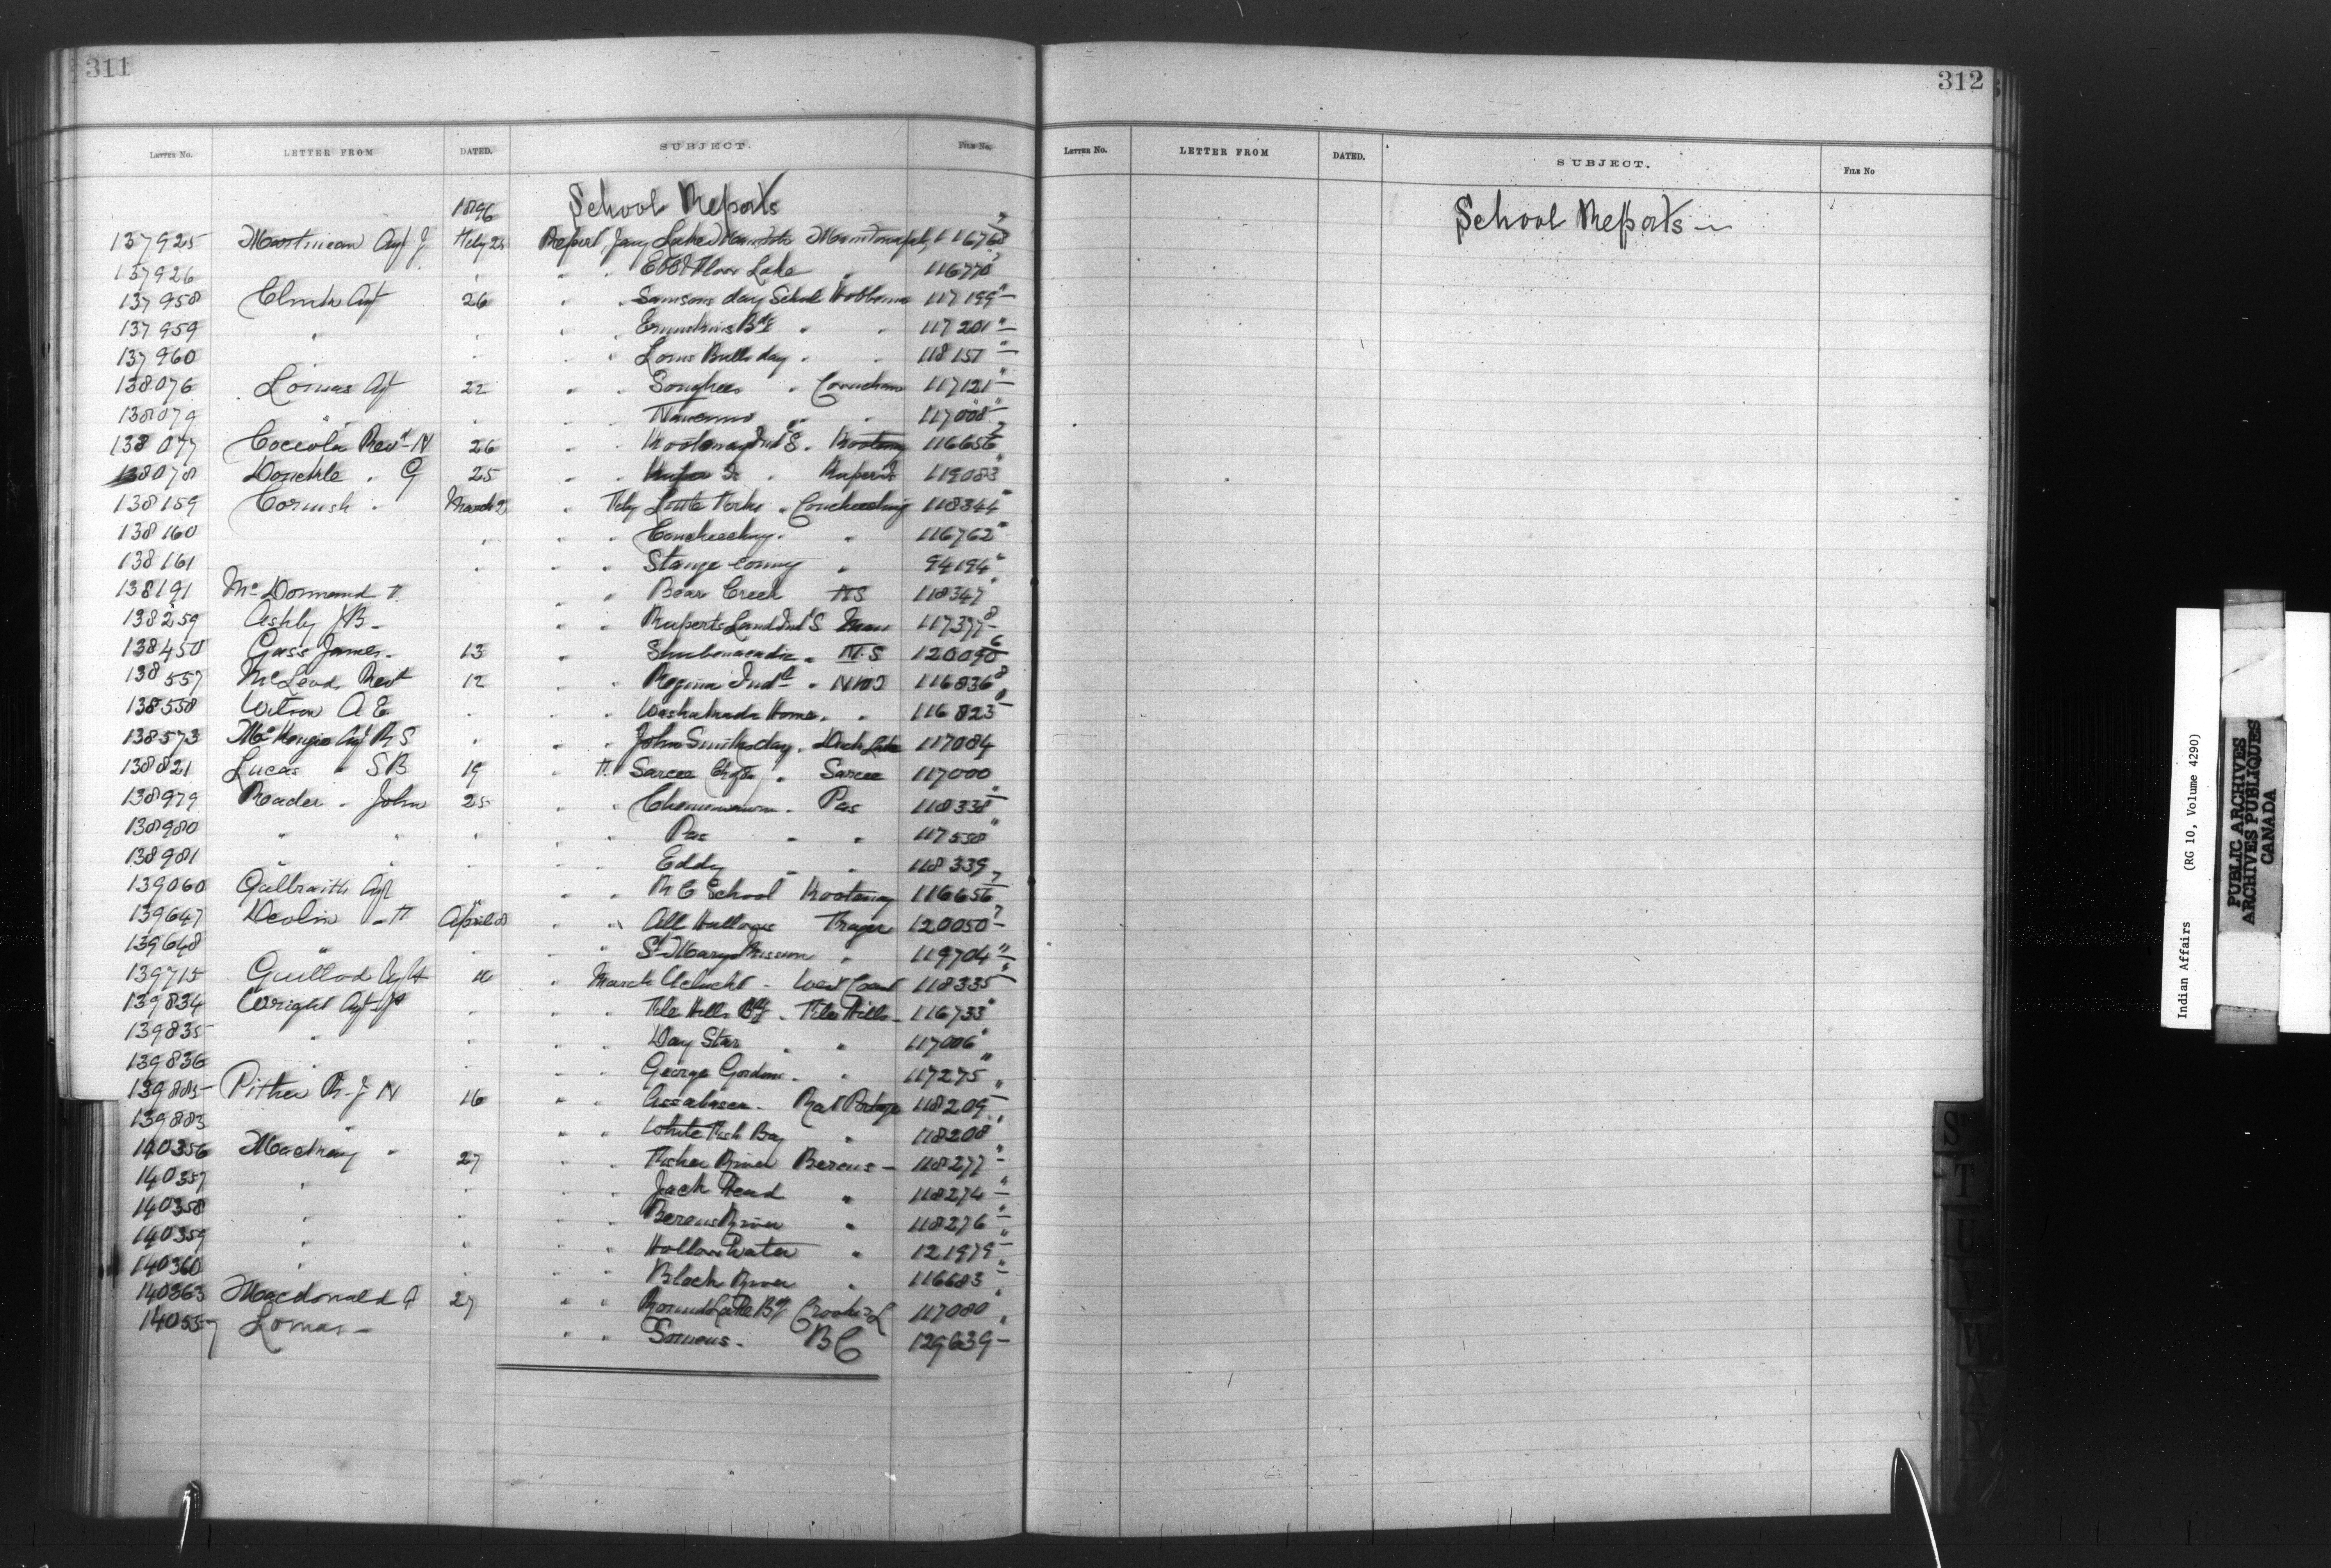 311
LETTER NO. LETTER FROM DATED. SUBJECT. FILE No.
1896 School Reports
137925 Martineau Agt J. Feby 25 Report Jany Lake Manitoba 11676
137926 " " Ebb & Flow Lake " 116770
137958 Agt 26 " " Samsons day School Hobbema 117199 "
137959 " " " " Ermineskins Bdg " " 117201 "
137960 " " " Louis Bulls day " " 118151 "
138076 Lomas Agt 22 " " Songhees " Cowichan 117121 "
138079 " " " Nanaimo " " 117008 "
138077 Coccola Revd N 26 " Kootenay Ind S. Kootenay 116656
138078 Donckele " G 25 " " Kuper Is " Kuper Is 119083 "
138159 Cornish " March 2 " Feby Little Forks " Coucheeching 118344 "
138160 " " " Coucheeching " " 116762 "
138161 " " " Stangecoming " 94194 "
138191 McDormand F. " " Bear Creek NS 118347 "
138259 Ashby J B - " " Ruperts Land Ind S Man 117377
138450 Gass James - 13 " Shubenacadie " N.S 120090
138557 McLeod Revd 12 " " Regina Indl " NWT 116836
138558 Wilson A E " " " Washakada Home " " 116823
138573 McKenzie Agt R S " " " John Smiths day " Duck Lake 117084
138821 Lucas " S B 19 " F. Sarcee " Sarcee 117000
138979 Reader " John 25 " " Chemawawin " Pas 118338 "
138980 " " " " " Pas " " 117538 "
138981 " " " " Eddy " " 118339
139060 Galbraith Agt " " R C School Kootenay 116656
139647 Devlin " F April 8 " " All Hallows Fraser 120050
139648 " " " St Marys Mission " 119704 "
139715 Guillod Agt H " March Ucluelet - West Coast 118335 "
139834 Wright Agt " " " File Hills Bdg " File Hills - 116733 "
139835 " " " " Day Star " " 117006 "
139836 " " " " George Gordons " " 117275 "
139885 Pither R. J N 16 " " Assabasca " Rat Portage 118209 "
139883 " " " White Fish Bay " 118208 "
140356 Mackay " 27 " " Fisher River Berens - 118277 "
140357 " " " " Jack Head " 118274 "
140358 " " " " Berens River " 118276 "
140359 " " " " Hollow Water " 121979 "
140360 " " " " Black River " 116683 "
140363 Macdonald A 27 " " Round Lake Bdg Crooked L 117080 "
140557 Lomas - " " Somenos - B C 129639 -
312
LETTER No. LETTER FROM DATED. SUBJECT. FILE No
School Reports -
S
T
U
V
W
X
Indian Affairs (RG 10, Volume 4290)
PUBLIC ARCHIVES
ARCHIVES PUBLIQUES
CANADA